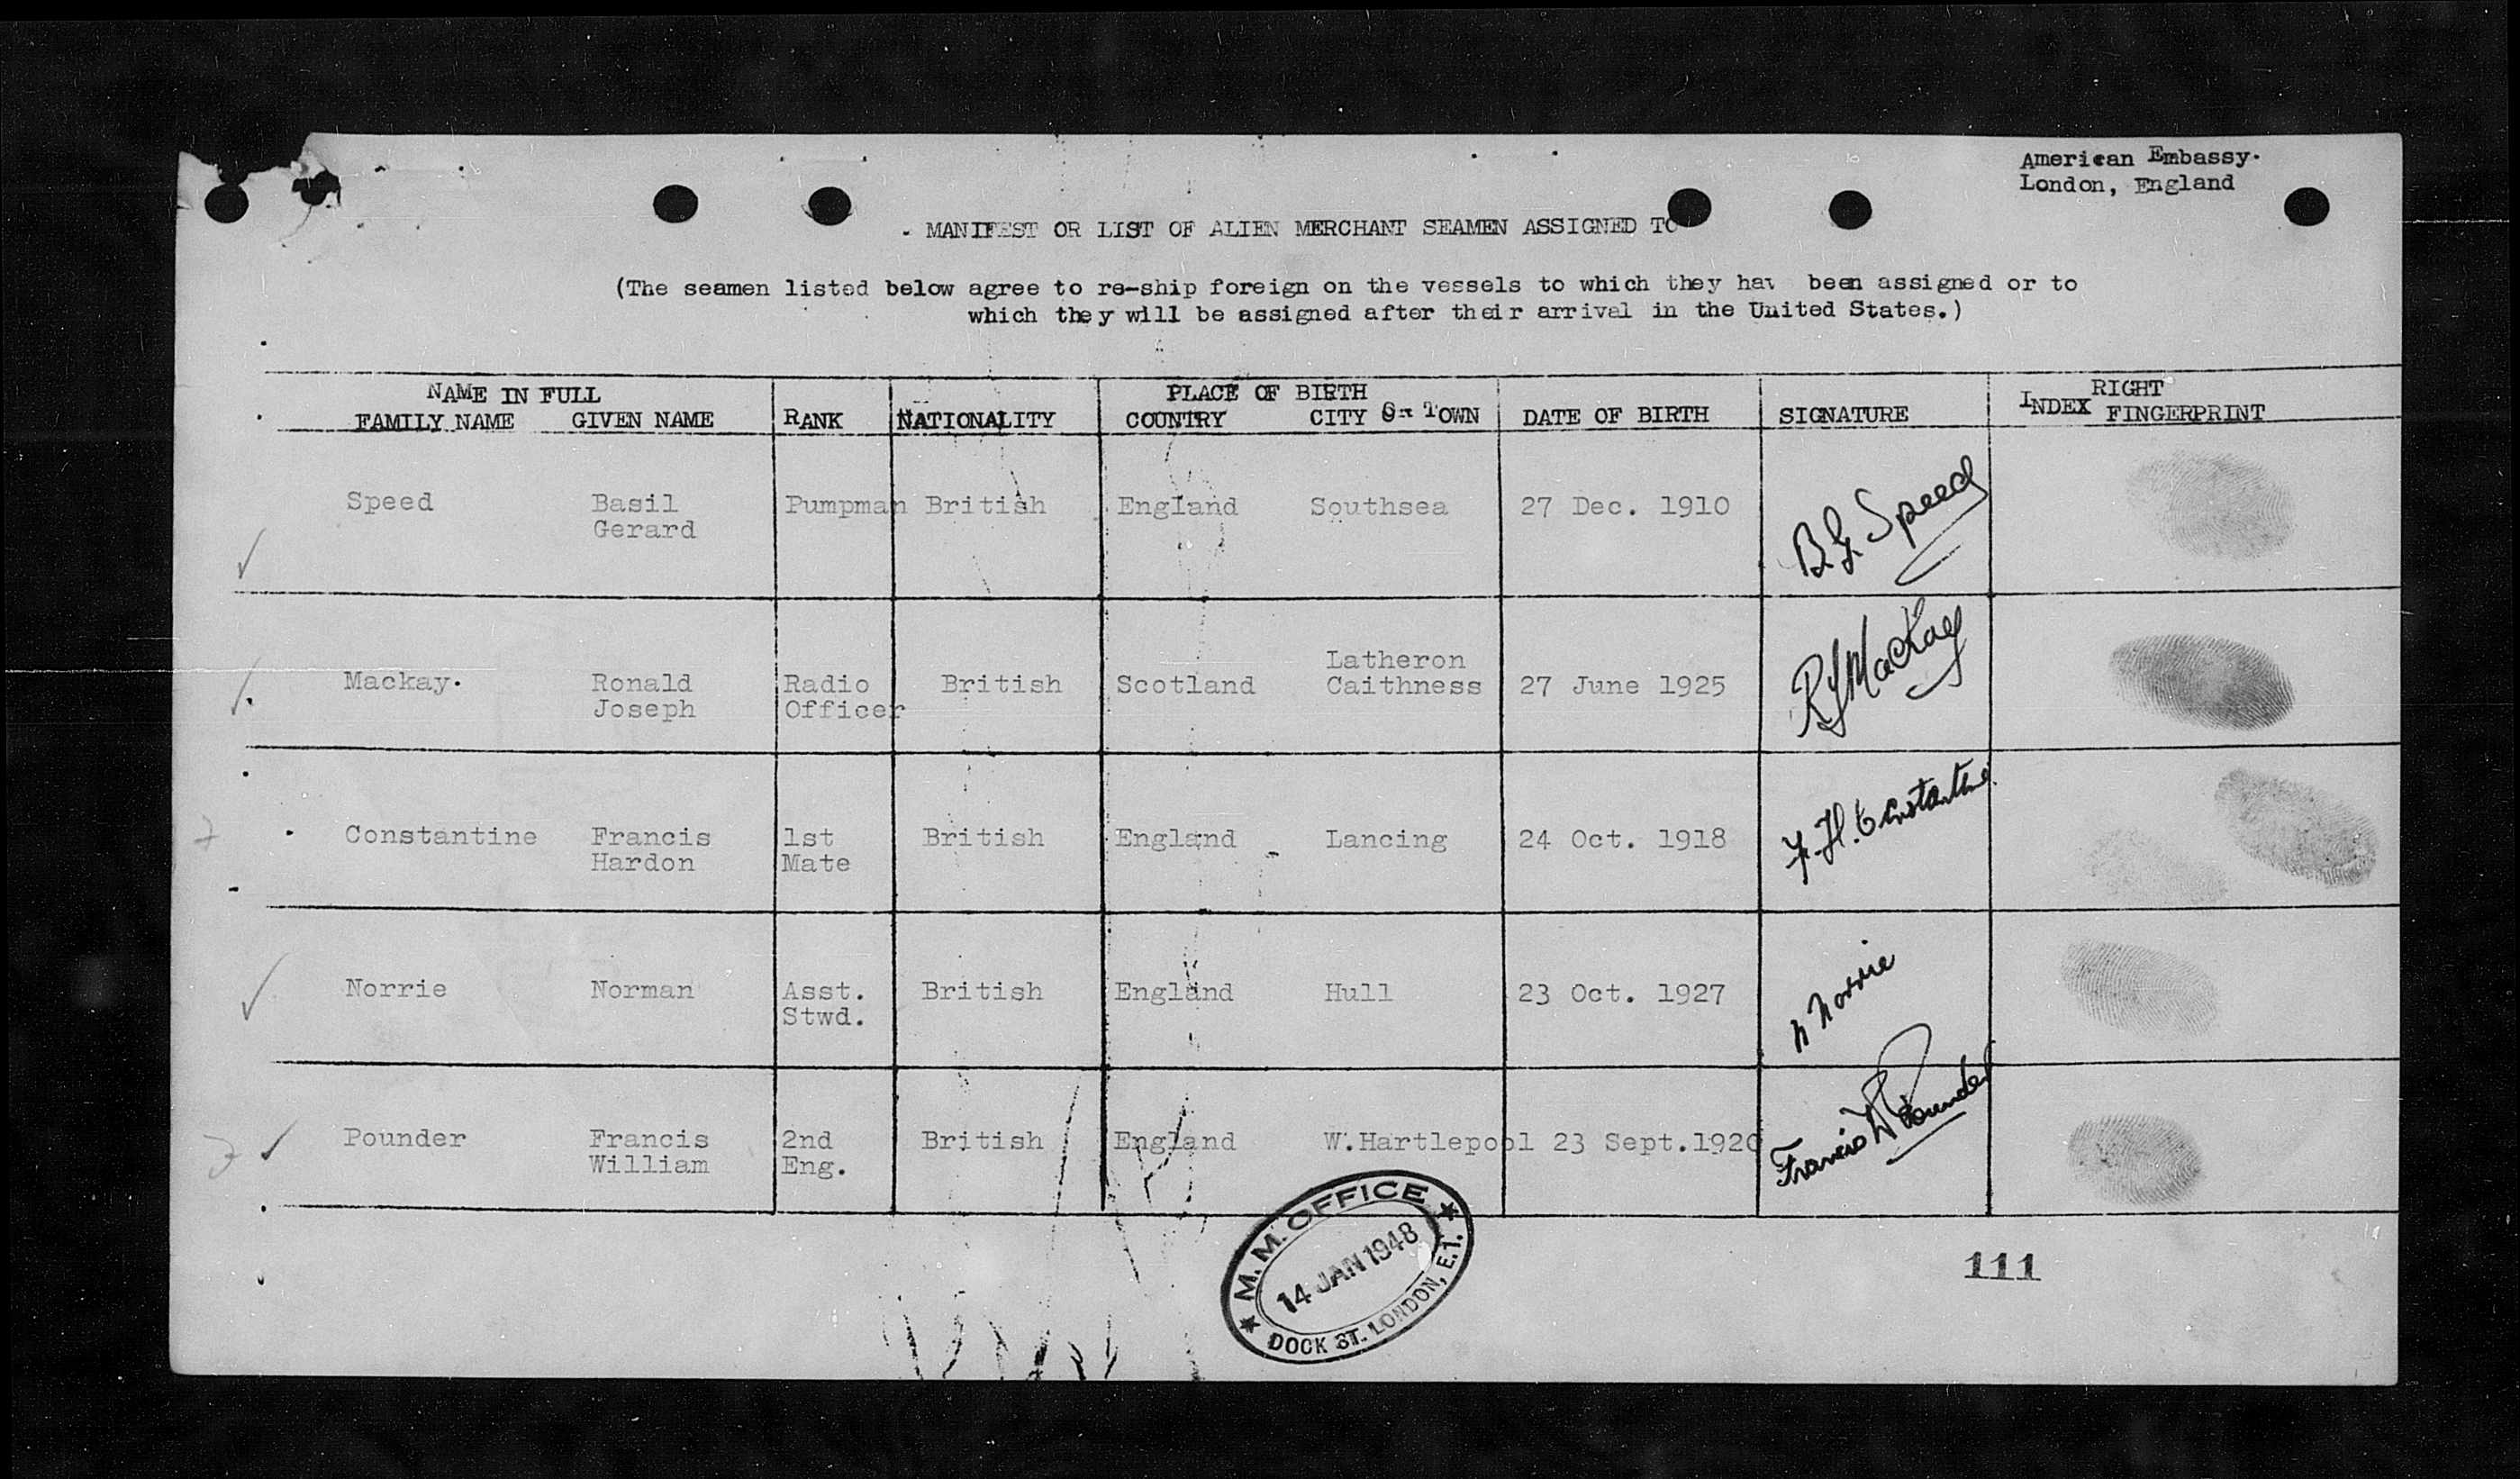 American Embassy.
London, England
MANIFEST OR LIST OF ALIEN MERCHANT SEAMEN ASSIGNED TO
(The seamen listed below agree to re-ship foreign on the vessels to which they hav been assigned or to
which they will be assigned after their arrival in the United States.)
NAME IN FULL PLACE OF BIRTH RIGHT
FAMILY NAME GIVEN NAME RANK NATIONALITY COUNTRY CITY Or TOWN DATE OF BIRTH SIGNATURE INDEX FINGERPRINT
Speed Basil Pumpman British England Southsea 27 Dec. 1910 B.G. Speed
Gerard
Latheron
Mackay. Ronald Radio British Scotland Caithness 27 June 1925 RJMacKay
Joseph Officer
Constantine Francis 1st British England Lancing 24 Oct. 1918 F.H. Constantine
Hardon Mate
Norrie Norman Asst. British England Hull 23 Oct. 1927 N Norrie
Stwd.
Pounder Francis 2nd British England W.Hartlepool 23 Sept.1920 Francis W Pounder
William Eng.
M.M. OFFICE
14 JAN 1948
DOCK ST. LONDON, E.1.
111